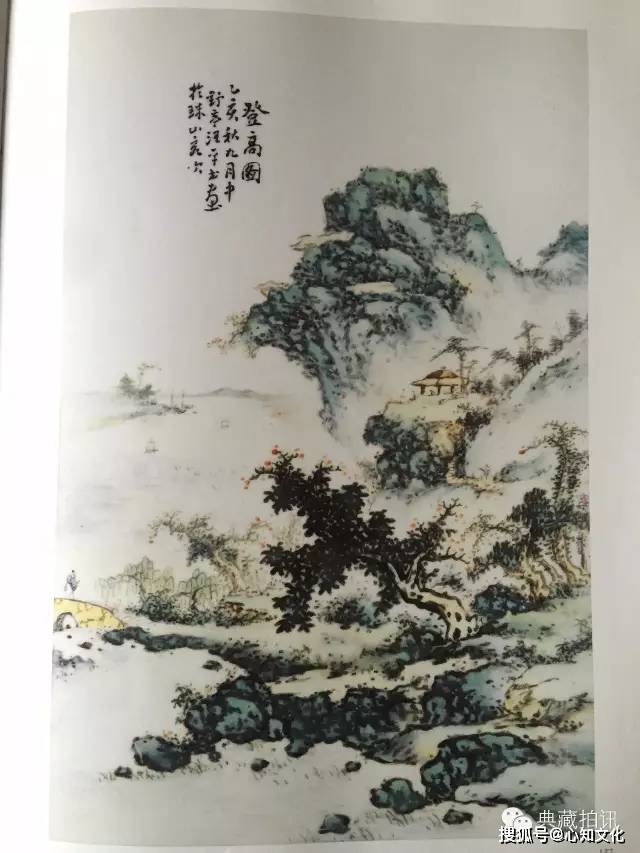 登高圖
乙亥秋九月中
野亭汪平書畫
於珠山客次
典藏拍讯
搜狐号@心知文化